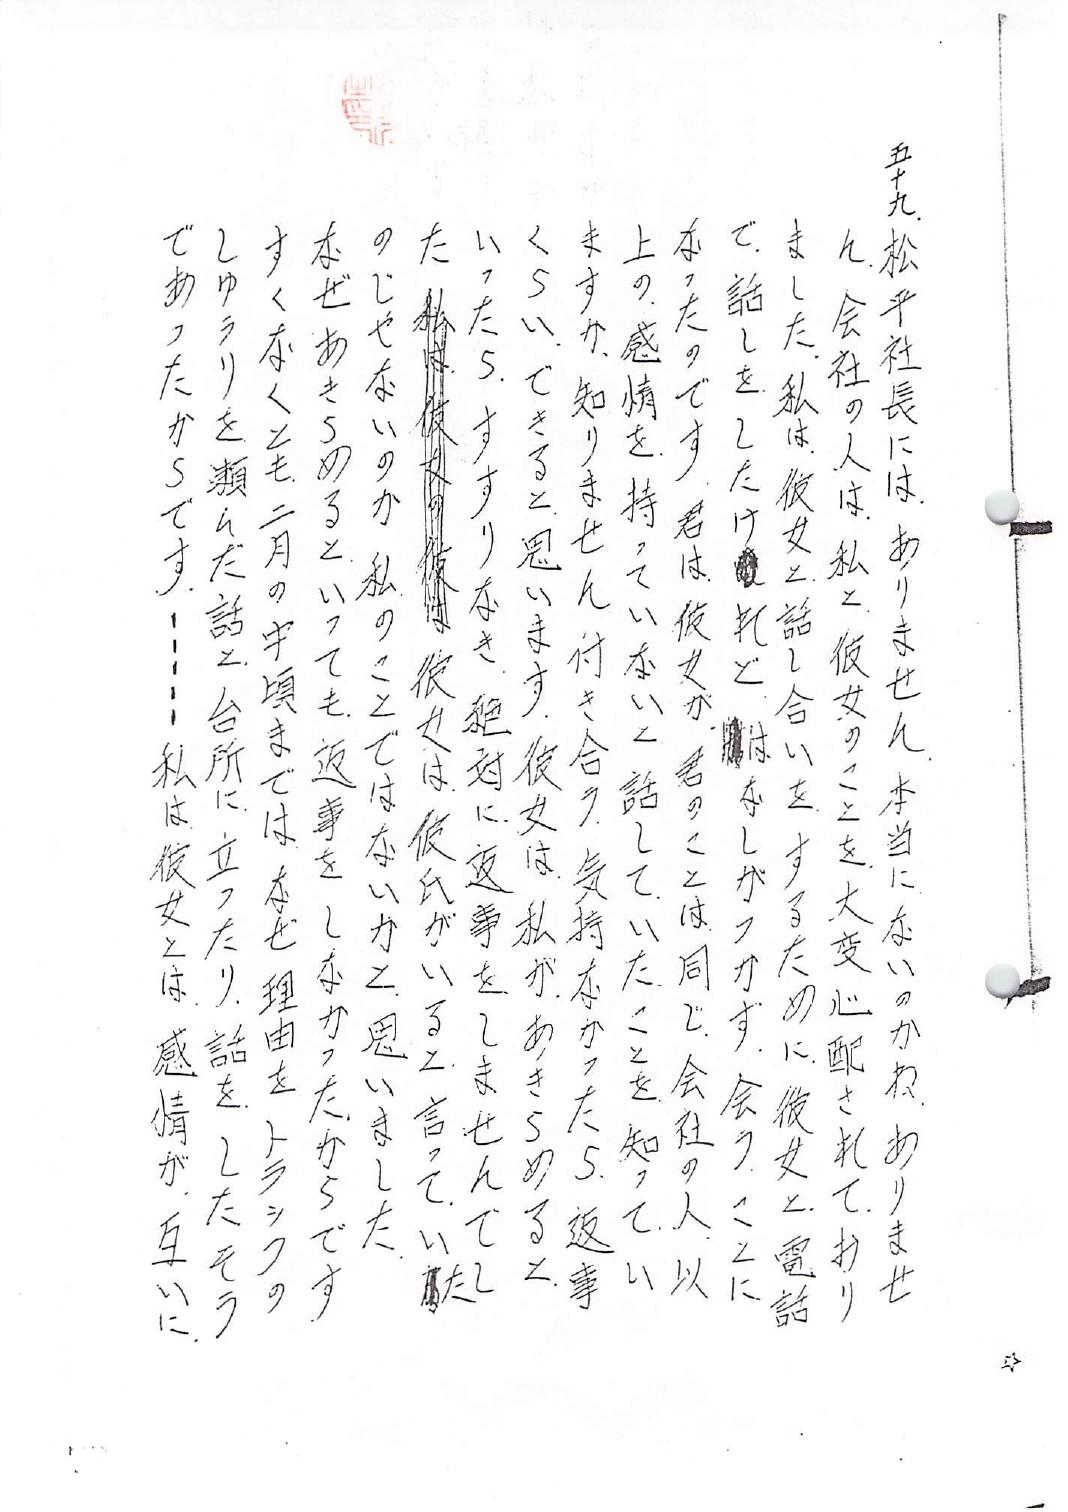 五十九、松平社長には、ありません、本当にないのかね、ありませ
ん、会社の人は、私と、彼女のことを、大変心配されて、おり
ました、私は、彼女と、話し合いを、するために、彼女と、電話
で、話しをしたけれど、はなしがつかず、会う、ことに
なったのです、君は、彼女が、君のことは、同じ、会社の人、以
上の、感情を、持っていないと、話して、いたことを、知って、い
ますか、知りません、付き合う、気持なかったら、返事
くらい、できると、思います、彼女は、私が、あきらめると、
いったら、すすりなき、絶対に、返事をしませんでし
た 彼女は、彼氏がいると、言って、いた
のじゃないのか 私のことではないかと、思いました、
なぜあきらめると、いっても、返事を、しなかったからです
すくなくとも、二月の中頃までは、なぜ理由を、トラックの
しゅうりを、頼んだ話と、台所に、立ったり、話を、したそう
であったからです、----私は、彼女とは、感情が、互いに、